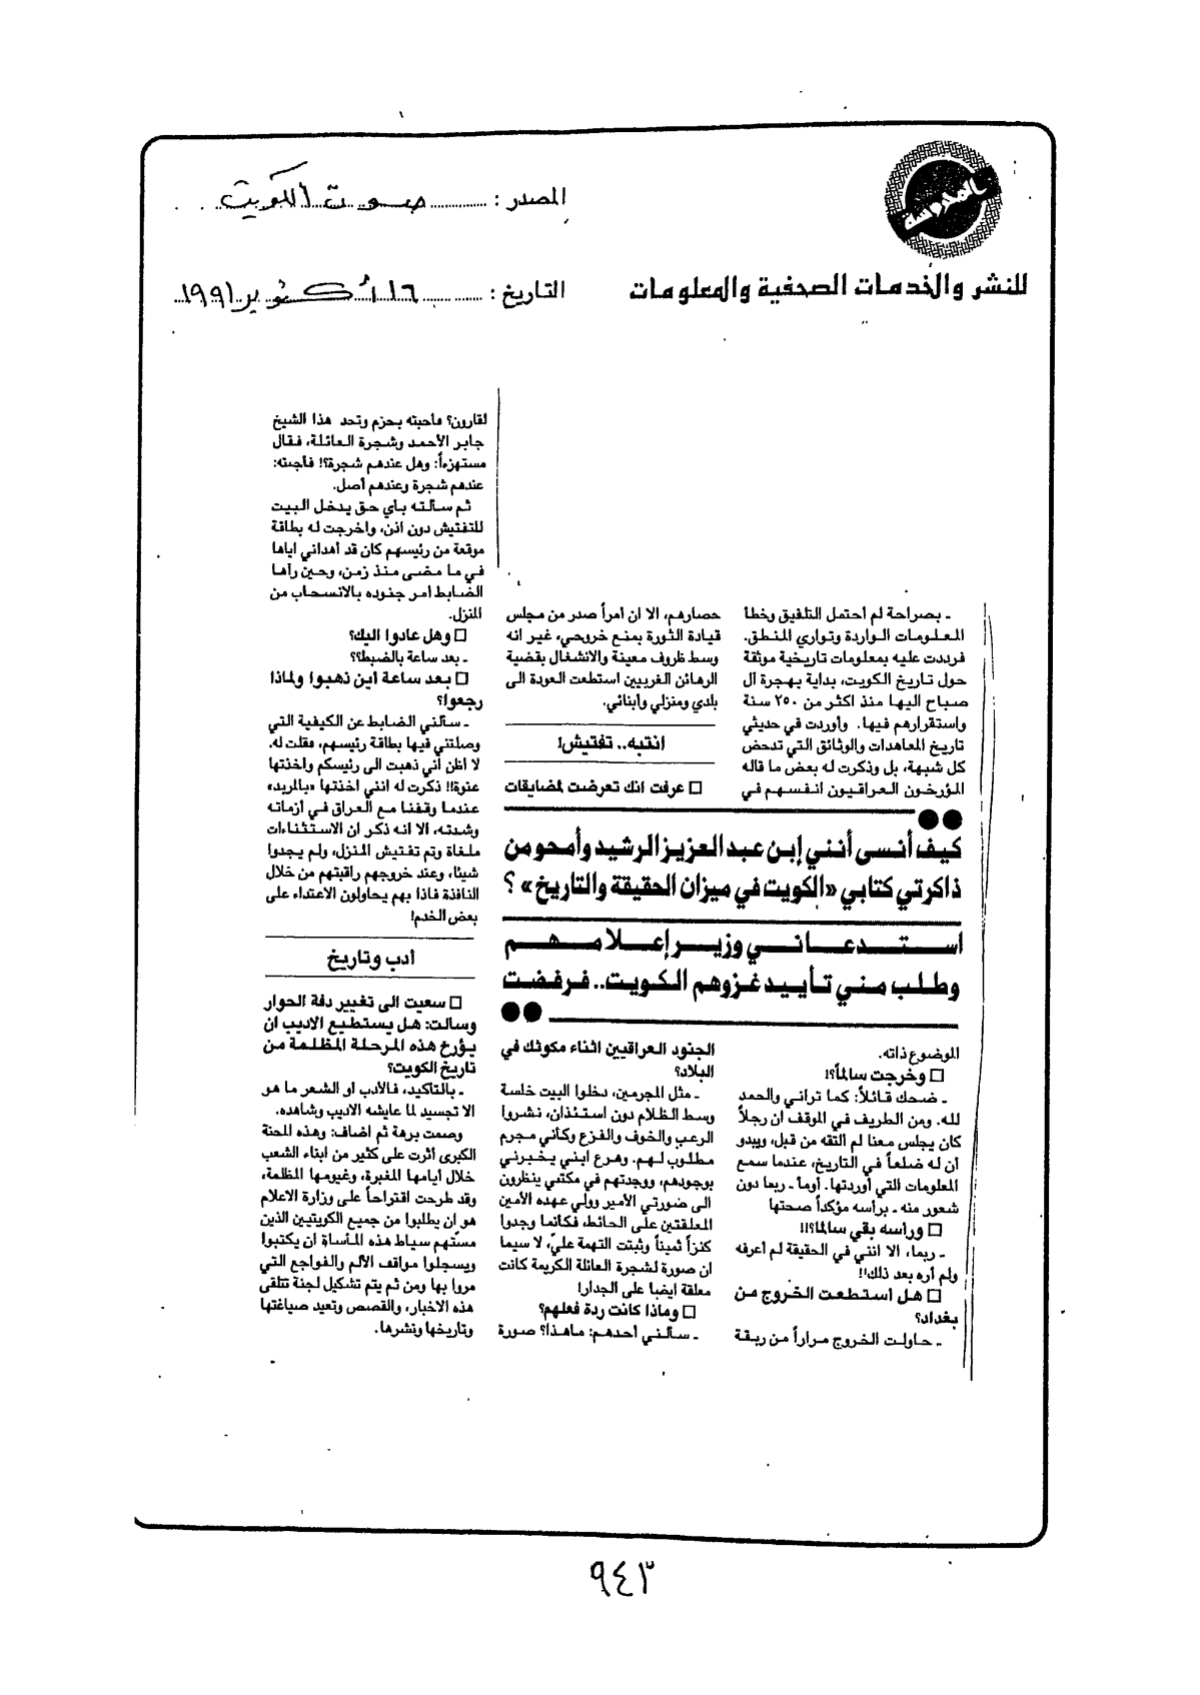 المصدر : صوت الكويت
للنشر والخدمات الصحفية والمعلومات
التاريخ : ١٦ أكتوبر ١٩٩١
ـ بصراحة لم أحتمل التلفيق وخطأ
المعلومات الواردة وتواري المنطق.
فرددت عليه بمعلومات تاريخية موثقة
حول تاريخ الكويت، بداية بهجرة آل
صباح اليها منذ اكثر من ٢٥٠ سنة
واستقرارهم فيها. واوردت في حديثي
تاريخ المعاهدات والوثائق التي تدحض
كل شبهة، بل وذكرت له بعض ما قاله
المؤرخون العراقيون انفسهم في
كيف أنسى أنني إبن عبد العزيز الرشيد وأمحو من
ذاكرتي كتابي «الكويت في ميزان الحقيقة والتاريخ» ؟
استدعاني وزير إعلامهم
وطلب مني تأييد غزوهم الكويت.. فرفضت
الموضوع ذاته.
□ وخرجت سالماً؟!
ـ ضحك قائلاً: كما تراني والحمد
لله. ومن الطريف في الموقف ان رجلاً
كان يجلس معنا لم التقه من قبل، ويبدو
أن له ضلعاً في التاريخ، عندما سمع
المعلومات التي أوردتها. أومأ ـ ربما دون
شعور منه ـ برأسه مؤكداً صحتها
□ ورأسه بقي سالما؟!!
ـ ربما، الا انني في الحقيقة لم أعرفه
ولم أره بعد ذلك!!
□ هل استطعت الخروج من
بغداد؟
ـ حاولت الخروج مراراً من ربقة
حصارهم، الا ان أمراً صدر من مجلس
قيادة الثورة بمنع خروجي، غير انه
وسط ظروف معينة والانشغال بقضية
الرهائن الغربيين استطعت العودة الى
بلدي ومنزلي وأبنائي.
انتبه.. تفتيش!
□ عرفت انك تعرضت لمضايقات
الجنود العراقيين اثناء مكوثك في
البلاد؟
ـ مثل المجرمين، دخلوا البيت خلسة
وسط الظلام دون استئذان، نشروا
الرعب والخوف والفزع وكأني مجرم
مطلوب لهم. وهرع ابني يخبرني
بوجودهم، ووجدتهم في مكتبي ينظرون
الى صورتي الأمير وولي عهده الأمين
المعلقتين على الحائط، فكانما وجدوا
كنزاً ثميناً وثبتت التهمة عليّ، لا سيما
ان صورة لشجرة العائلة الكريمة كانت
معلقة ايضا على الجدار!
□ وماذا كانت ردة فعلهم؟
ـ سألني أحدهم: ماهذا؟ صورة
لقارون؟ فأجبته بحزم وتحد هذا الشيخ
جابر الأحمد وشجرة العائلة، فقال
مستهزءاً: وهل عندهم شجرة؟! فأجبته:
عندهم شجرة وعندهم أصل.
ثم سألته بأي حق يدخل البيت
للتفتيش دون اذن، واخرجت له بطاقة
موقعة من رئيسهم كان قد أهداني اياها
في ما مضى منذ زمن، وحين رآها
الضابط أمر جنوده بالانسحاب من
المنزل.
□ وهل عادوا اليك؟
ـ بعد ساعة بالضبط؟؟
□ بعد ساعة اين ذهبوا ولماذا
رجعوا؟
ـ سألني الضابط عن الكيفية التي
وصلتني فيها بطاقة رئيسهم، فقلت له.
لا أظن أني ذهبت الى رئيسكم واخذتها
عنوة!! ذكرت له انني اخذتها «بالمربد»
عندما وقفنا مع العراق في أزماته
وشدته، الا انه ذكر ان الاستثناءات
ملغاة وتم تفتيش المنزل، ولم يجدوا
شيئا، وعند خروجهم راقبتهم من خلال
النافذة فاذا بهم يحاولون الاعتداء على
بعض الخدم!
ادب وتاريخ
□ سعيت الى تغيير دفة الحوار
وسالت: هل يستطيع الاديب ان
يؤرخ هذه المرحلة المظلمة من
تاريخ الكويت؟
ـ بالتاكيد، فالأدب او الشعر ما هو
الا تجسيد لما عايشه الاديب وشاهده.
وصمت برهة ثم اضاف: وهذه المحنة
الكبرى أثرت على كثير من ابناء الشعب
خلال أيامها المغبرة، وغيومها المظلمة،
وقد طرحت اقتراحاً على وزارة الاعلام
هو ان يطلبوا من جميع الكويتيين الذين
مستهم سياط هذه المأساة ان يكتبوا
ويسجلوا مواقف الألم والفواجع التي
مروا بها ومن ثم يتم تشكيل لجنة تتلقى
هذه الاخبار، والقصص وتعيد صياغتها
وتاريخها ونشرها.
٩٤٣